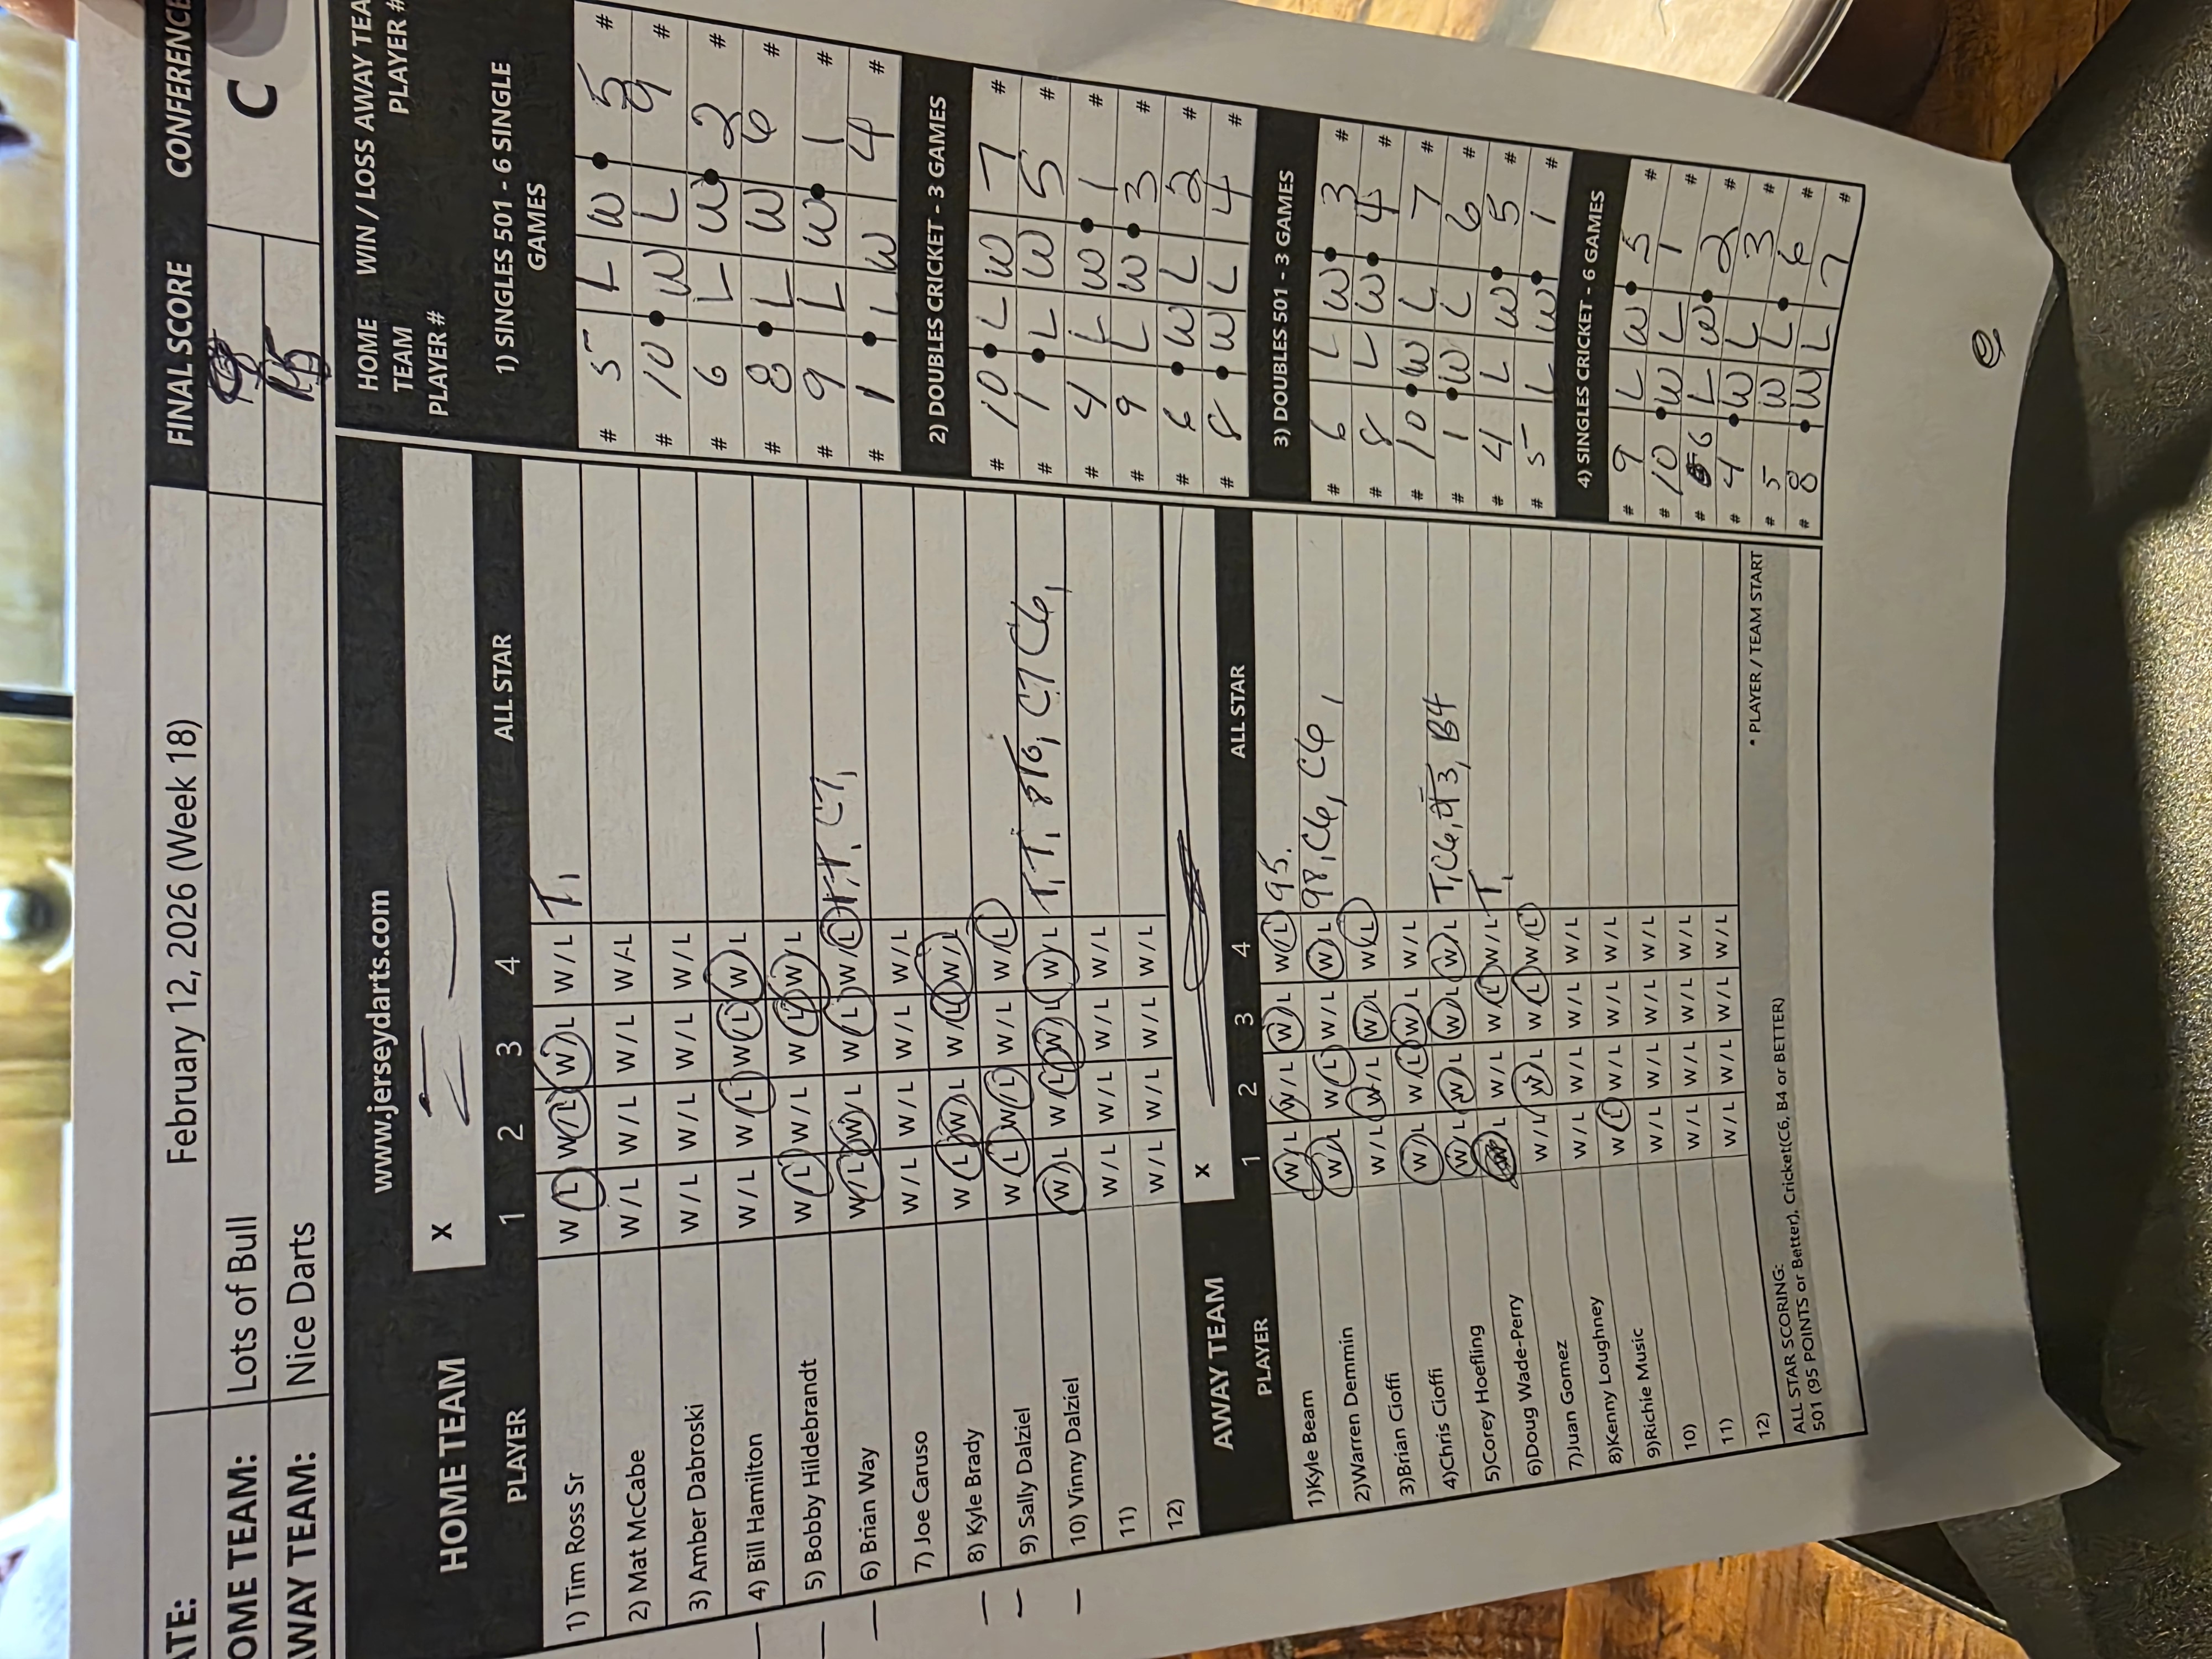 ATE: February 12, 2026 (Week 18) FINAL SCORE CONFERENCE
OME TEAM: Lots of Bull C
AWAY TEAM: Nice Darts 15
www.jerseydarts.com
HOME TEAM X
PLAYER 1 2 3 4 ALL STAR
1) Tim Ross Sr W / L W / L W / L W / L T,
2) Mat McCabe W / L W / L W / L W / L
3) Amber Dabroski W / L W / L W / L W / L
4) Bill Hamilton W / L W / L W / L W / L
5) Bobby Hildebrandt W / L W / L W / L W / L
6) Brian Way W / L W / L W / L W / L T, T, C7,
7) Joe Caruso W / L W / L W / L W / L
8) Kyle Brady W / L W / L W / L W / L
9) Sally Dalziel W / L W / L W / L W / L
10) Vinny Dalziel W / L W / L W / L W / L T, T, C7, C6,
11) W / L W / L W / L W / L
12) W / L W / L W / L W / L
AWAY TEAM X
PLAYER 1 2 3 4 ALL STAR
1)Kyle Beam W / L W / L W / L W / L 95,
2)Warren Denmin W / L W / L W / L W / L 98, C6, C6,
3)Brian Cioffi W / L W / L W / L W / L
4)Chris Cioffi W / L W / L W / L W / L
5)Corey Hoefling W / L W / L W / L W / L T, C6, B4
6)Doug Wade-Perry W / L W / L W / L W / L T,
7)Juan Gomez W / L W / L W / L W / L
8)Kenny Loughney W / L W / L W / L W / L
9)Richie Music W / L W / L W / L W / L
10) W / L W / L W / L W / L
11) W / L W / L W / L W / L
12)
* PLAYER / TEAM START
ALL STAR SCORING:
501 (95 POINTS or Better), Cricket(C6, B4 or BETTER)
HOME WIN / LOSS AWAY TEA
TEAM PLAYER #
PLAYER #
1) SINGLES 501 - 6 SINGLE
GAMES
# 5 L W 5 #
# 10 W L 9 #
# 6 L W 2 #
# 8 L W 6 #
# 9 L W 1 #
# 1 L W 4 #
2) DOUBLES CRICKET - 3 GAMES
# 10 L W 7 #
# 1 L W 5 #
# 4 L W 1 #
# 9 L W 3 #
# 6 W L 2 #
# 8 W L 4 #
3) DOUBLES 501 - 3 GAMES
# 6 L W 3 #
# 8 L W 4 #
# 10 W L 7 #
# 1 W L 6 #
# 4 L W 5 #
# 5 L W 1 #
4) SINGLES CRICKET - 6 GAMES
# 9 L W 5 #
# 10 W L 1 #
# 6 L W 2 #
# 4 W L 3 #
# 5 W L 6 #
# 8 W L 7 #